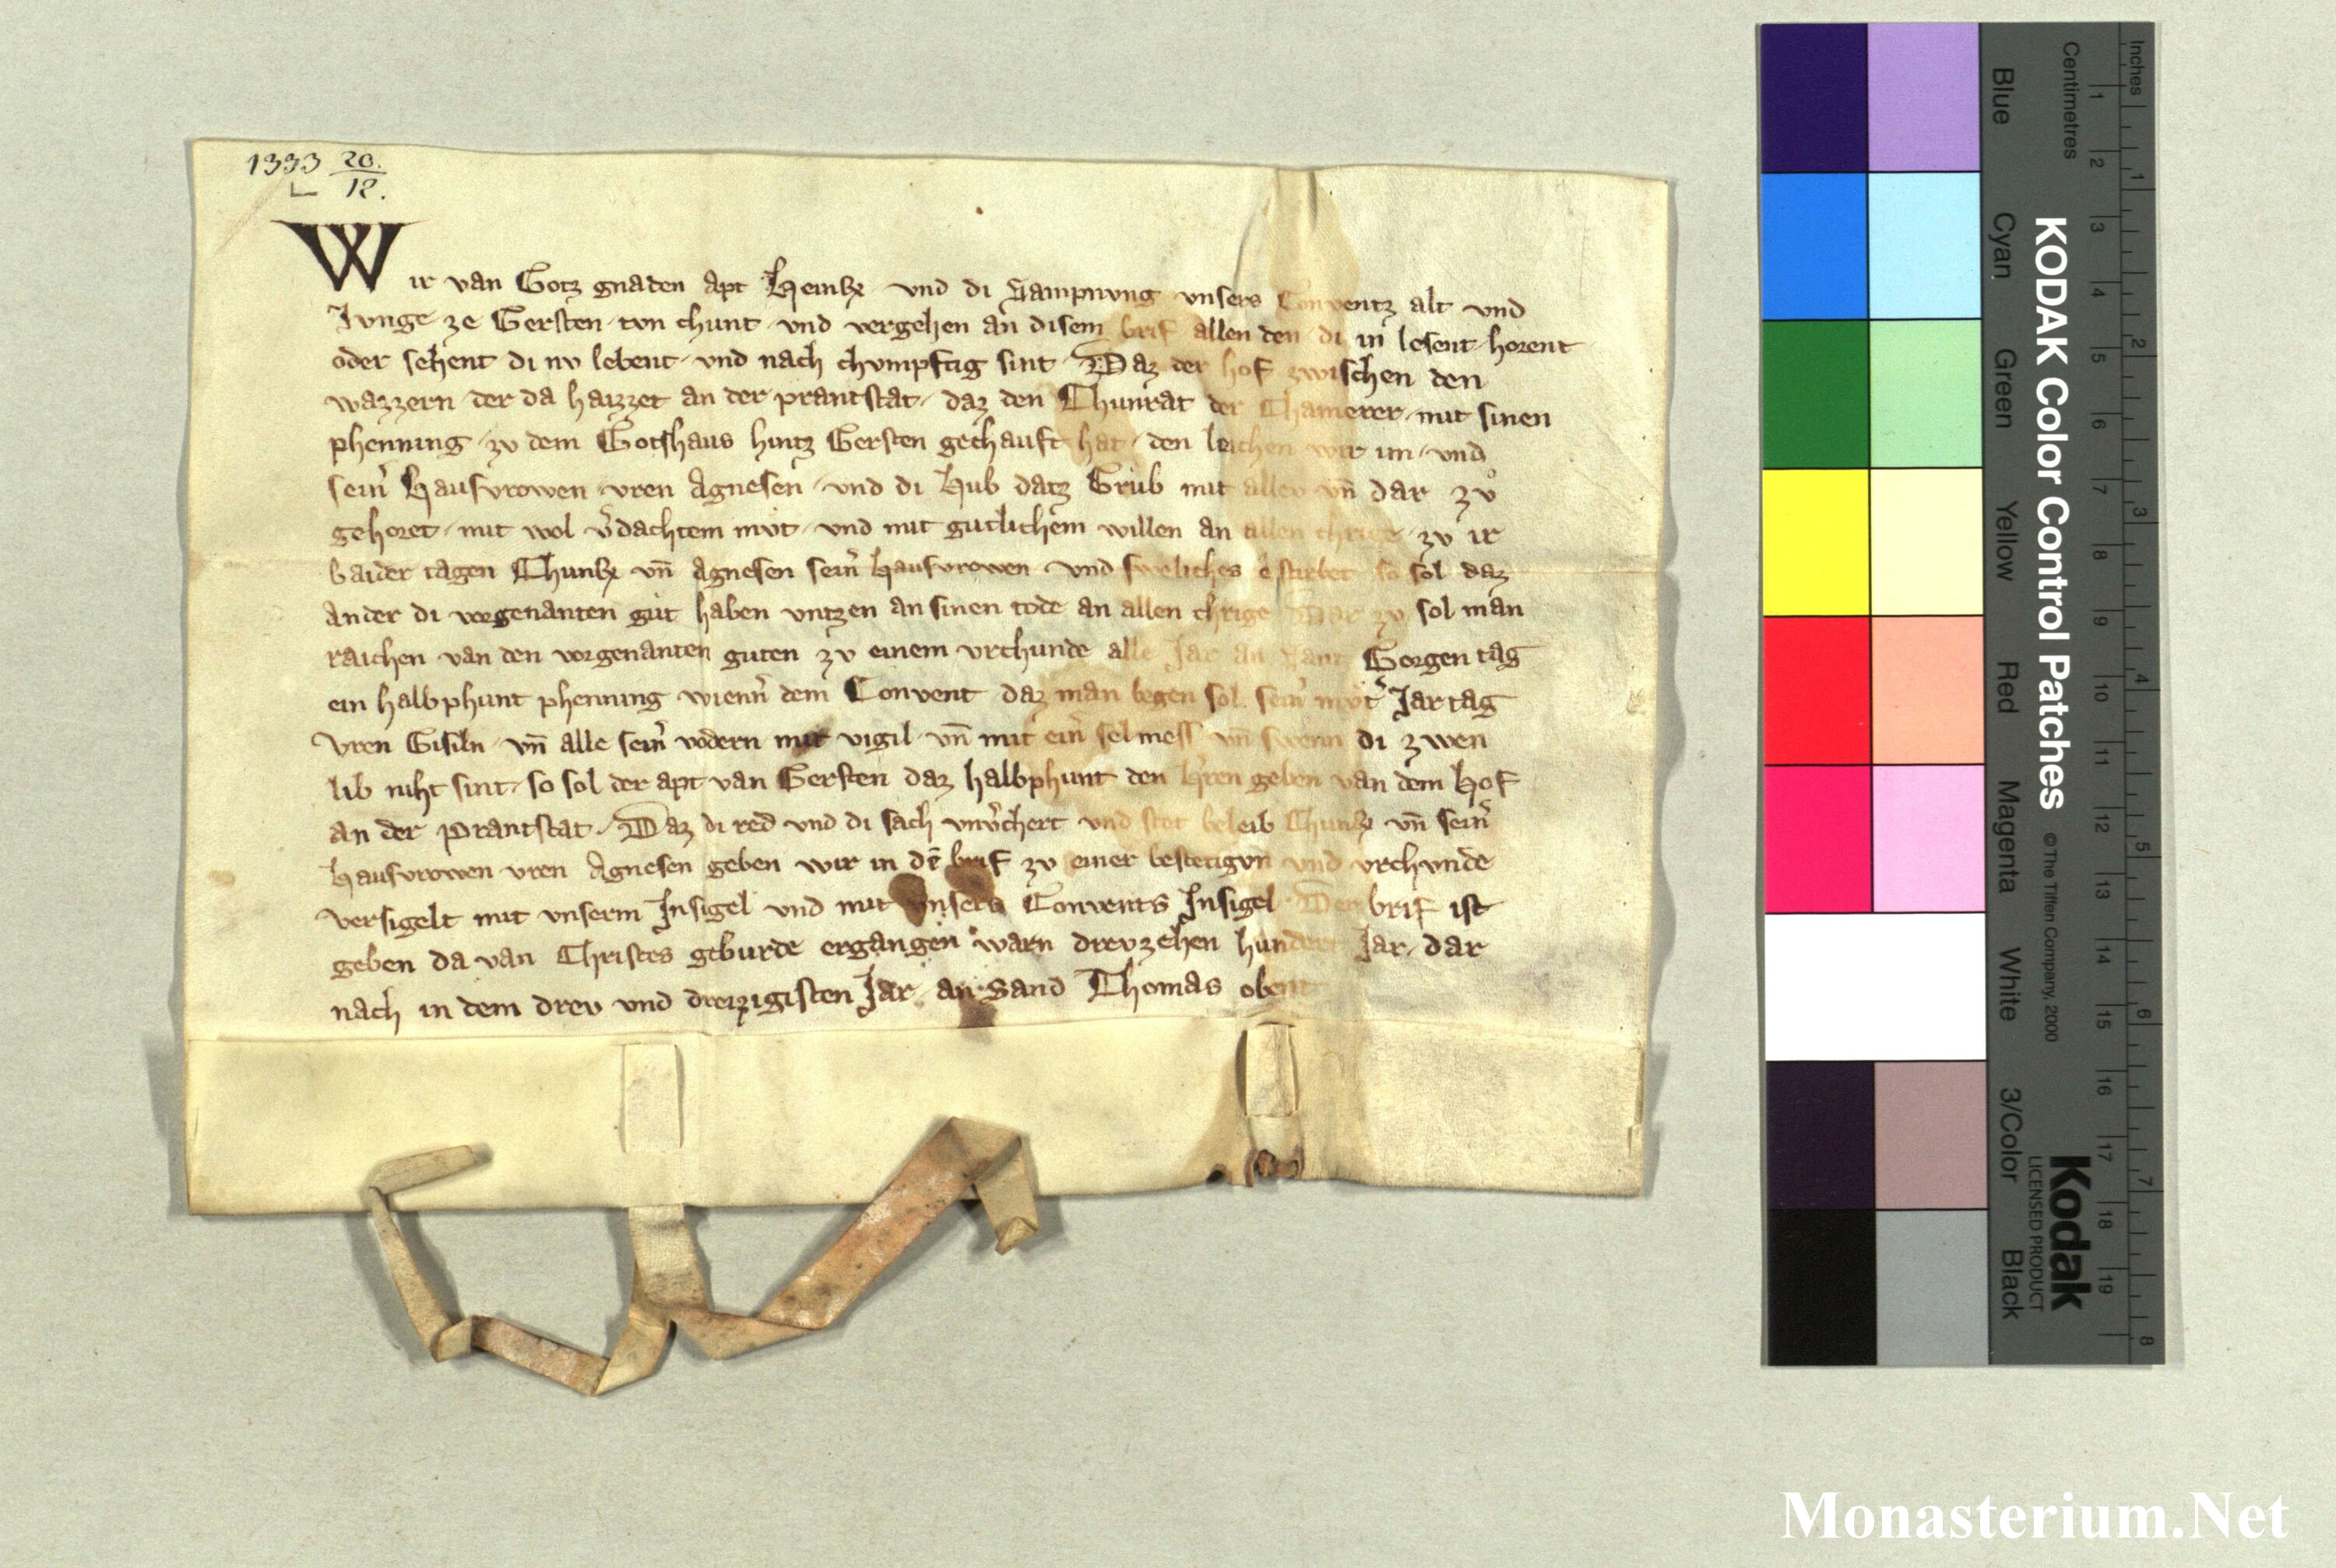 1333 20./12.
Wir van Gotz gnaden apt Heinr̃ und di Sampnung unsers Conventz alt und
Junge ze Gersten tvn chunt und vergehen an disem brif allen den di in lesent horent
oder sehent di nv lebent und nach chvmpftig sint Daz der hof zwischen den
wazzern der da haizzet an der prantstat daz den Chunrat der Chamerer mit sinen
phenning zv dem Gotshaus hintz Gersten gechauft hat den leichen wir im und
sein̄ hausvrowen vren Agnesen und di hub datz Grub mit allev vn̄ dar zvͦ
gehoret mit wol v̄dachtem mvt und mit gutlichem willen an allen chrige zv ir
baider tagen Chunr̃ vn̄ Agnesen sein̄ hausvrowen und sweliches e stirbet so sol daz
ander di vorgenanten gut haben vntzen an sinen tode an allen chrige Dar zv sol man
raichen van den vorgenanten guten zv einem vrchunde alle Jar an Sant Gorgen tag
ein halb phunt phenning wienn̄ dem Convent daz man begen sol sein̄ mvt̄ Jartag
vren Gisiln vn̄ alle sein̄ vodern mit vigil vn̄ mit ein̄ selmess vn̄ swenn di zwen
lib niht sint so sol der apt van Gersten daz halbphunt den h̄ren geben van dem hof
an der Prantstat Daz di red und di sach vnv̄chert und stet beleib Chunr̃ vn̄ sein̄
hausvrowen vren Agnesen geben wir in dē brif zv einer bestetigvn und vrchvnde
versigelt mit vnserm Insigel und mit vnsers Convents Insigel Der brif ist
geben da van Christes geburde ergangen warn drevzehen hundert Jar dar
nach in dem drev und dreizigisten Jar an Sand Thomas obent
Inches
Centimetres
1 2 3 4 5 6 7 8
1 2 3 4 5 6 7 8 9 10 11 12 13 14 15 16 17 18 19
KODAK Color Control Patches © The Tiffen Company, 2000 Kodak
LICENSED PRODUCT
Blue Cyan Green Yellow Red Magenta White 3/Color Black
Monasterium.Net